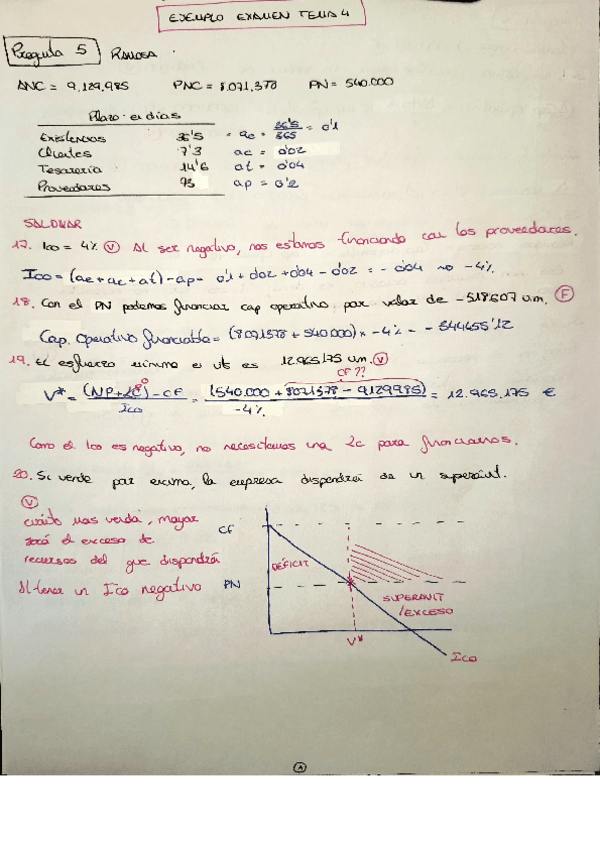 EJEMPLO EXAMEN TEMA 4
Pregunta 5 RAMOSA.
ANC = 9.129.985 PNC = 8.071.378 PN = 540.000
Plazo en días
Existencias 36'5 = ae = 36'5/365 = 0'1
Clientes 7'3 ac = 0'02
Tesorería 14'6 at = 0'04
Proveedores 73 ap = 0'2
SALOMAR
17. Ico = 4% V Al ser negativo, nos estamos financiando con los proveedores.
Ico = (ae + ac + at) - ap = 0'1 + 0'02 + 0'04 - 0'02 = - 0'04 no -4%
18. Con el PN podemos financiar cap operativo por valor de -518.607 um. F
Cap. Operativo financiable = (8071378 + 540.000) × -4% = - 344455'12
19. El esfuerzo mínimo en vts es 12.965.175 um. V
CF??
0
V* = (NP + LC) - CF / Ico = (540.000 + 8071378 - 9129985) / -4% = 12.965.175 €
Como el Ico es negativo, no necesitamos una LC para financiarnos.
20. Si vende por encima, la empresa dispondrá de un superávit.
V
cuanto más venda, mayor
será el exceso de
recursos del que dispondrá
Al tener un Ico negativo
CF
DÉFICIT
PN
SUPERAVIT
/EXCESO
V*
Ico